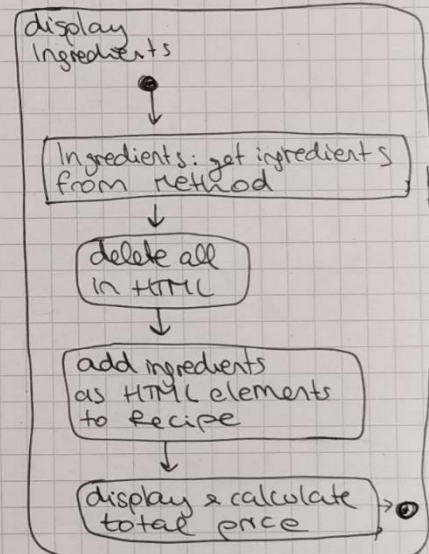 display
Ingredients
Ingredients: get ingredients
from Method
delete all
in HTML
add ingredients
as HTML elements
to Recipe
display & calculate
total price